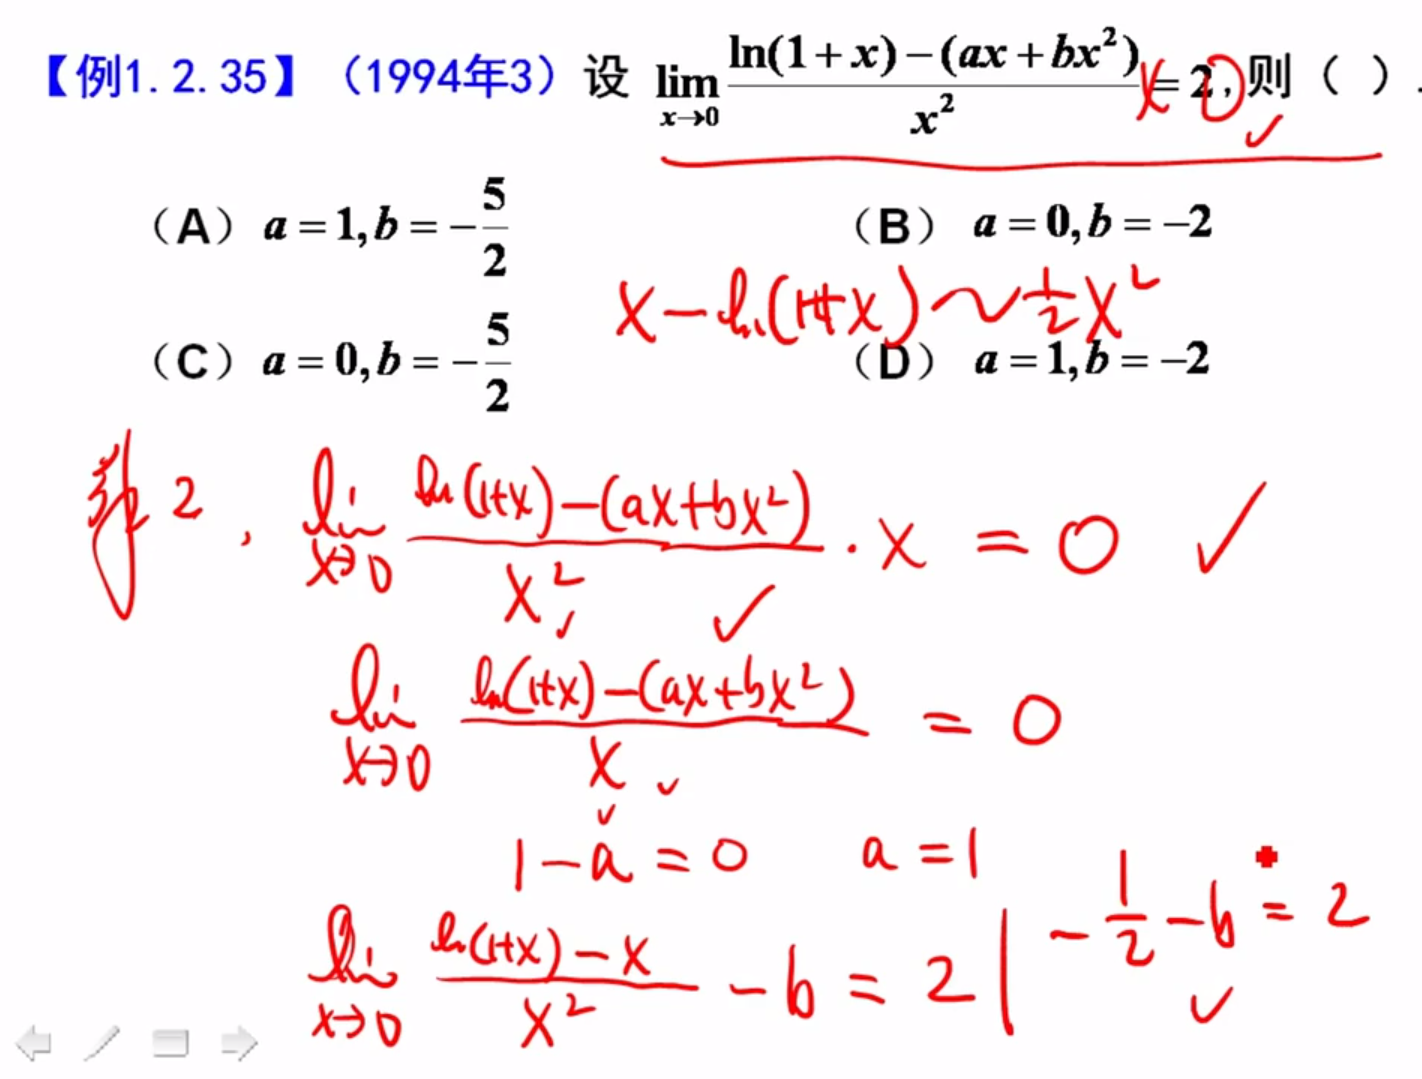 【例1.2.35】（1994年3）设 lim x→0 (ln(1+x)−(ax+bx²))/x² = 2,则（ ）.
x 0
（A）a=1,b=−5/2 （B）a=0,b=−2
x−ln(1+x)~1/2x²
（C）a=0,b=−5/2 （D）a=1,b=−2
2, lim x→0 (ln(1+x)−(ax+bx²))/x² · x = 0
lim x→0 (ln(1+x)−(ax+bx²))/x = 0
1−a=0 a=1
lim x→0 (ln(1+x)−x)/x² − b = 2 | −1/2−b=2